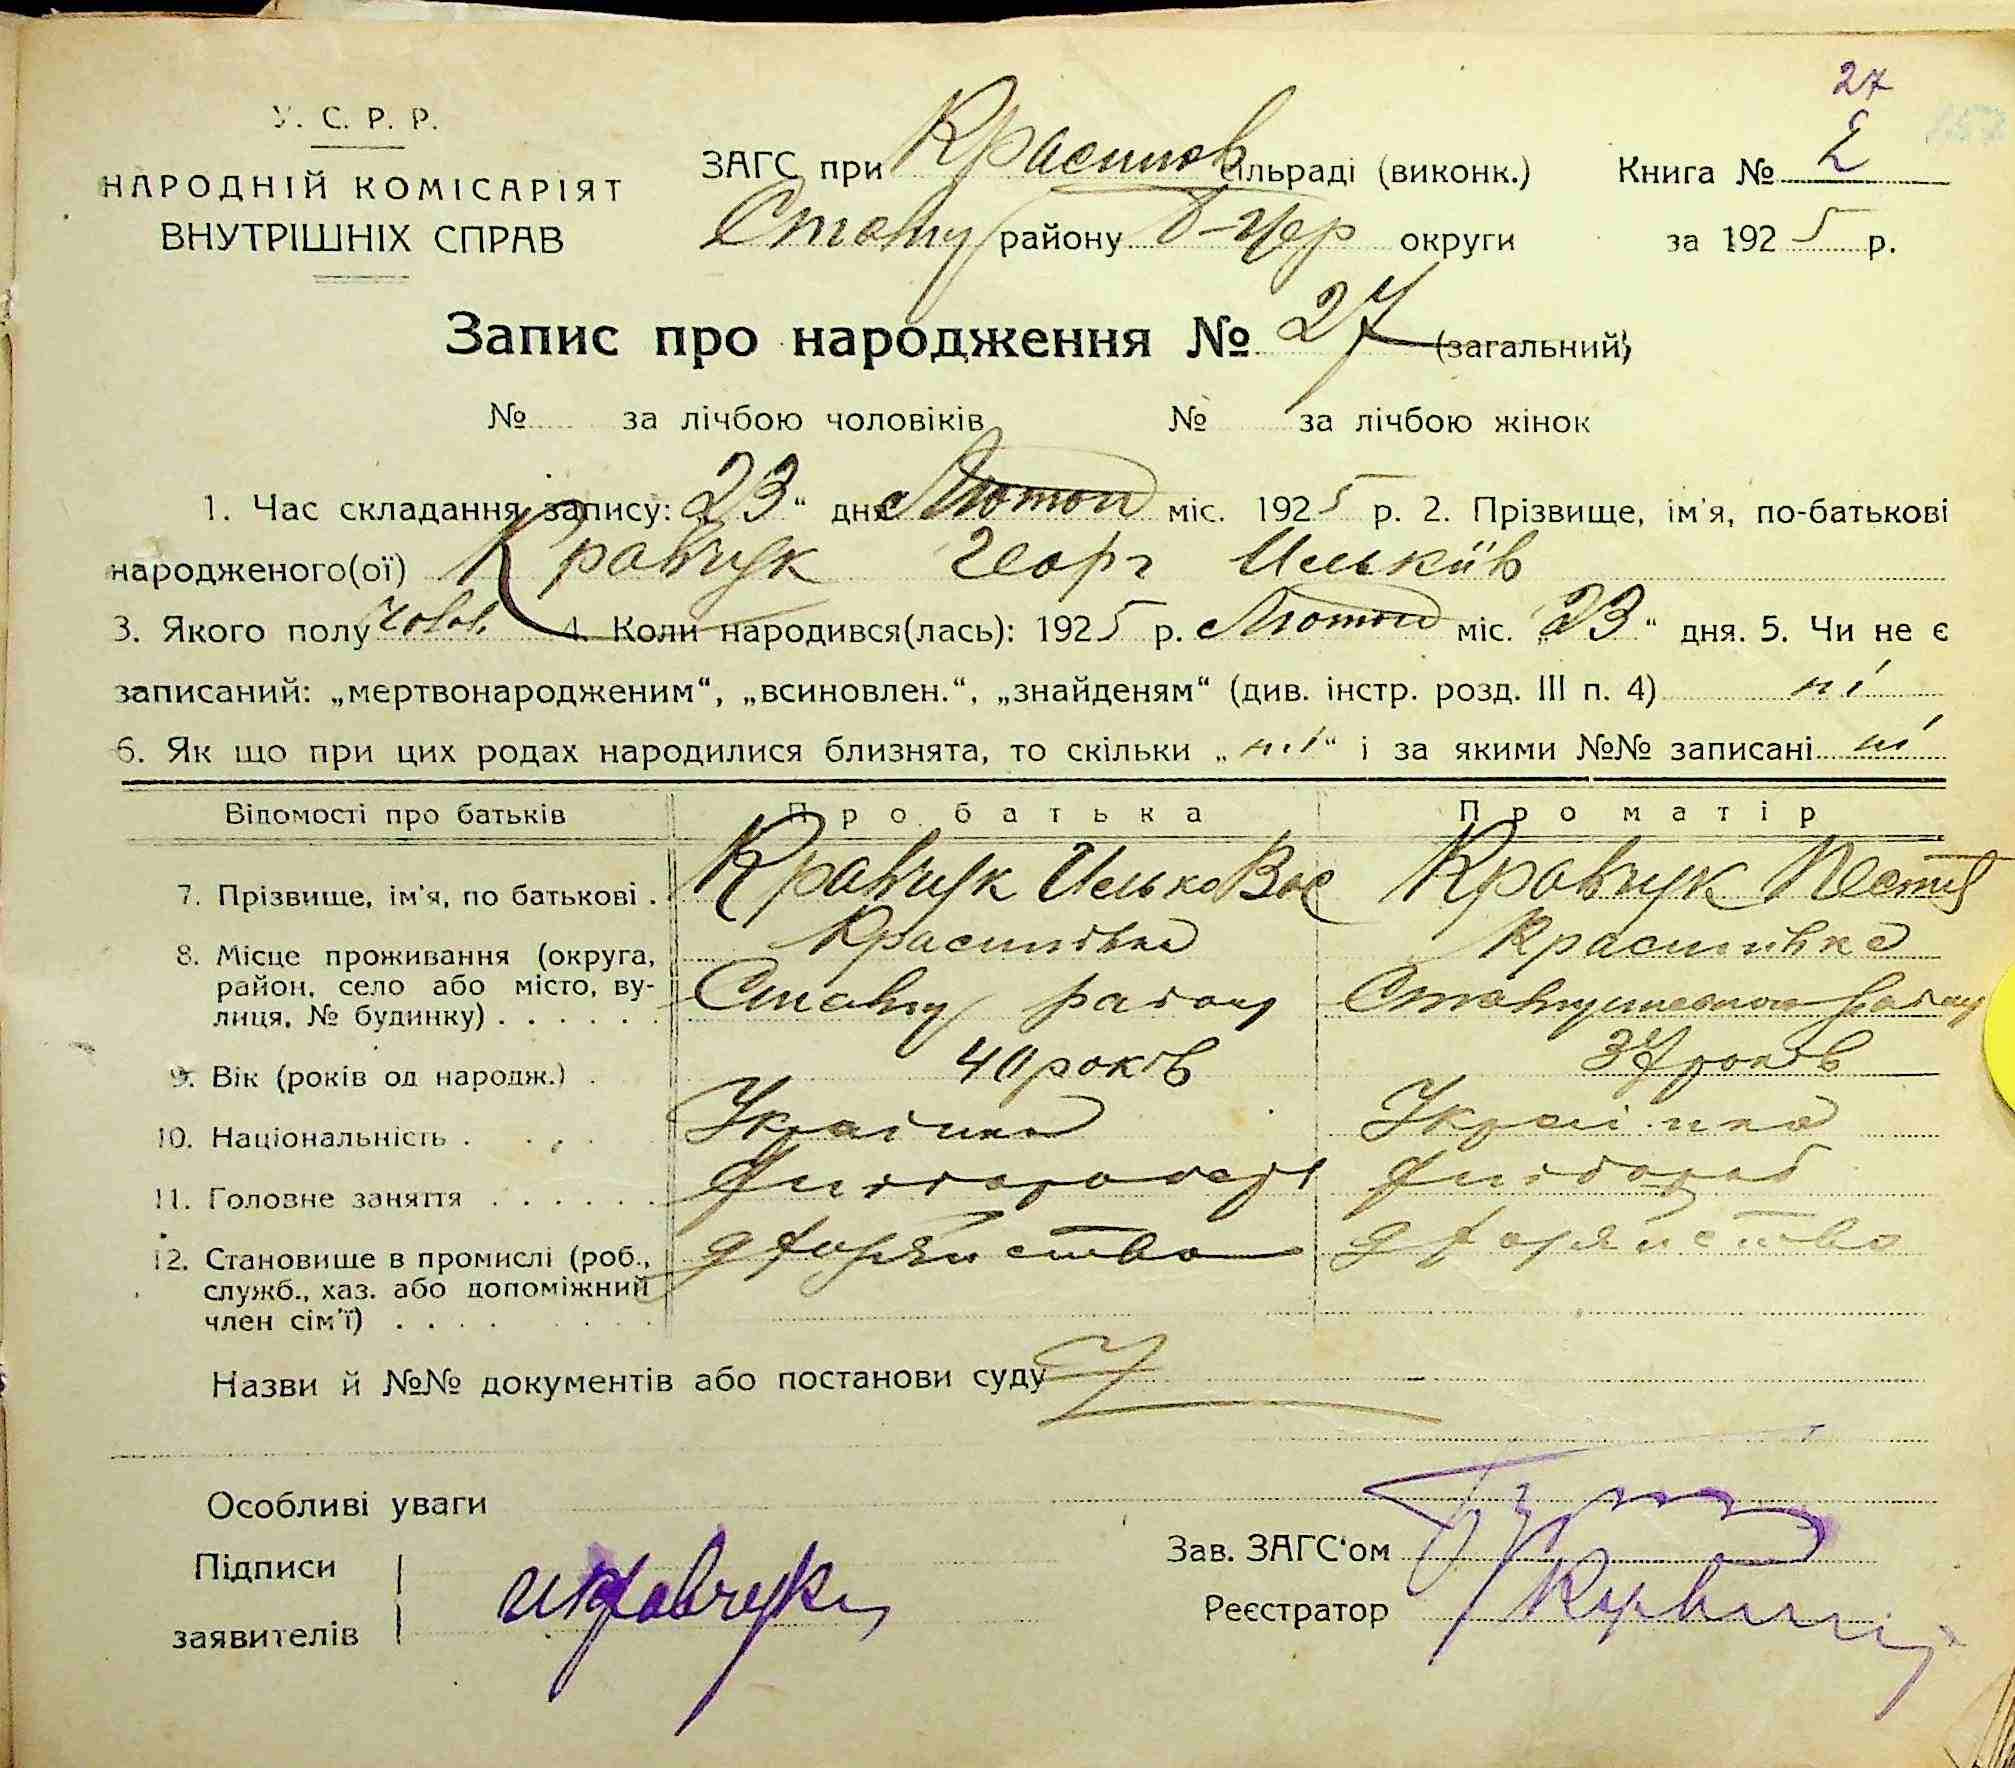 27
У. С. Р. Р.
НАРОДНІЙ КОМІСАРІЯТ
ВНУТРІШНІХ СПРАВ
ЗАГС при Красилов сільраді (виконк.) Книга № 2
Ставищ району Б-Цер округи за 1925 р.
Запис про народження № 27 (загальний)
№ за лічбою чоловіків № за лічбою жінок
1. Час складання запису: 23 " дня Лютого міс. 1925 р. 2. Прізвище, ім'я, по-батькові
народженого(ої) Кравчук Георг Ильків
3. Якого полу чолов. 4. Коли народився(лась): 1925 р. Лютого міс. „23" дня. 5. Чи не є
записаний: „мертвонародженим", „всиновлен.", „знайденям" (див. інстр. розд. III п. 4) ні
6. Як що при цих родах народилися близнята, то скільки „ні" і за якими №№ записані ні
Відомості про батьків Про батька Про матір
7. Прізвище, ім'я, по батькові . Кравчук Илько Вас Кравчук
8. Місце проживання (округа, Красилівка Красилівка
район, село або місто, ву- Ставищ району району
лиця, № будинку) . . . . . .
9. Вік (років од народж.) . 40 років 37 років
10. Національність . . . Українец Українка
11. Головне заняття . . . . . . хлібороб
12. Становище в промислі (роб.,
служб., хаз. або допоміжний
член сім'ї) . . . .
Назви й №№ документів або постанови суду
Особливі уваги
Підписи
заявителів
И Кравчук
Зав. ЗАГС'ом
Реєстратор